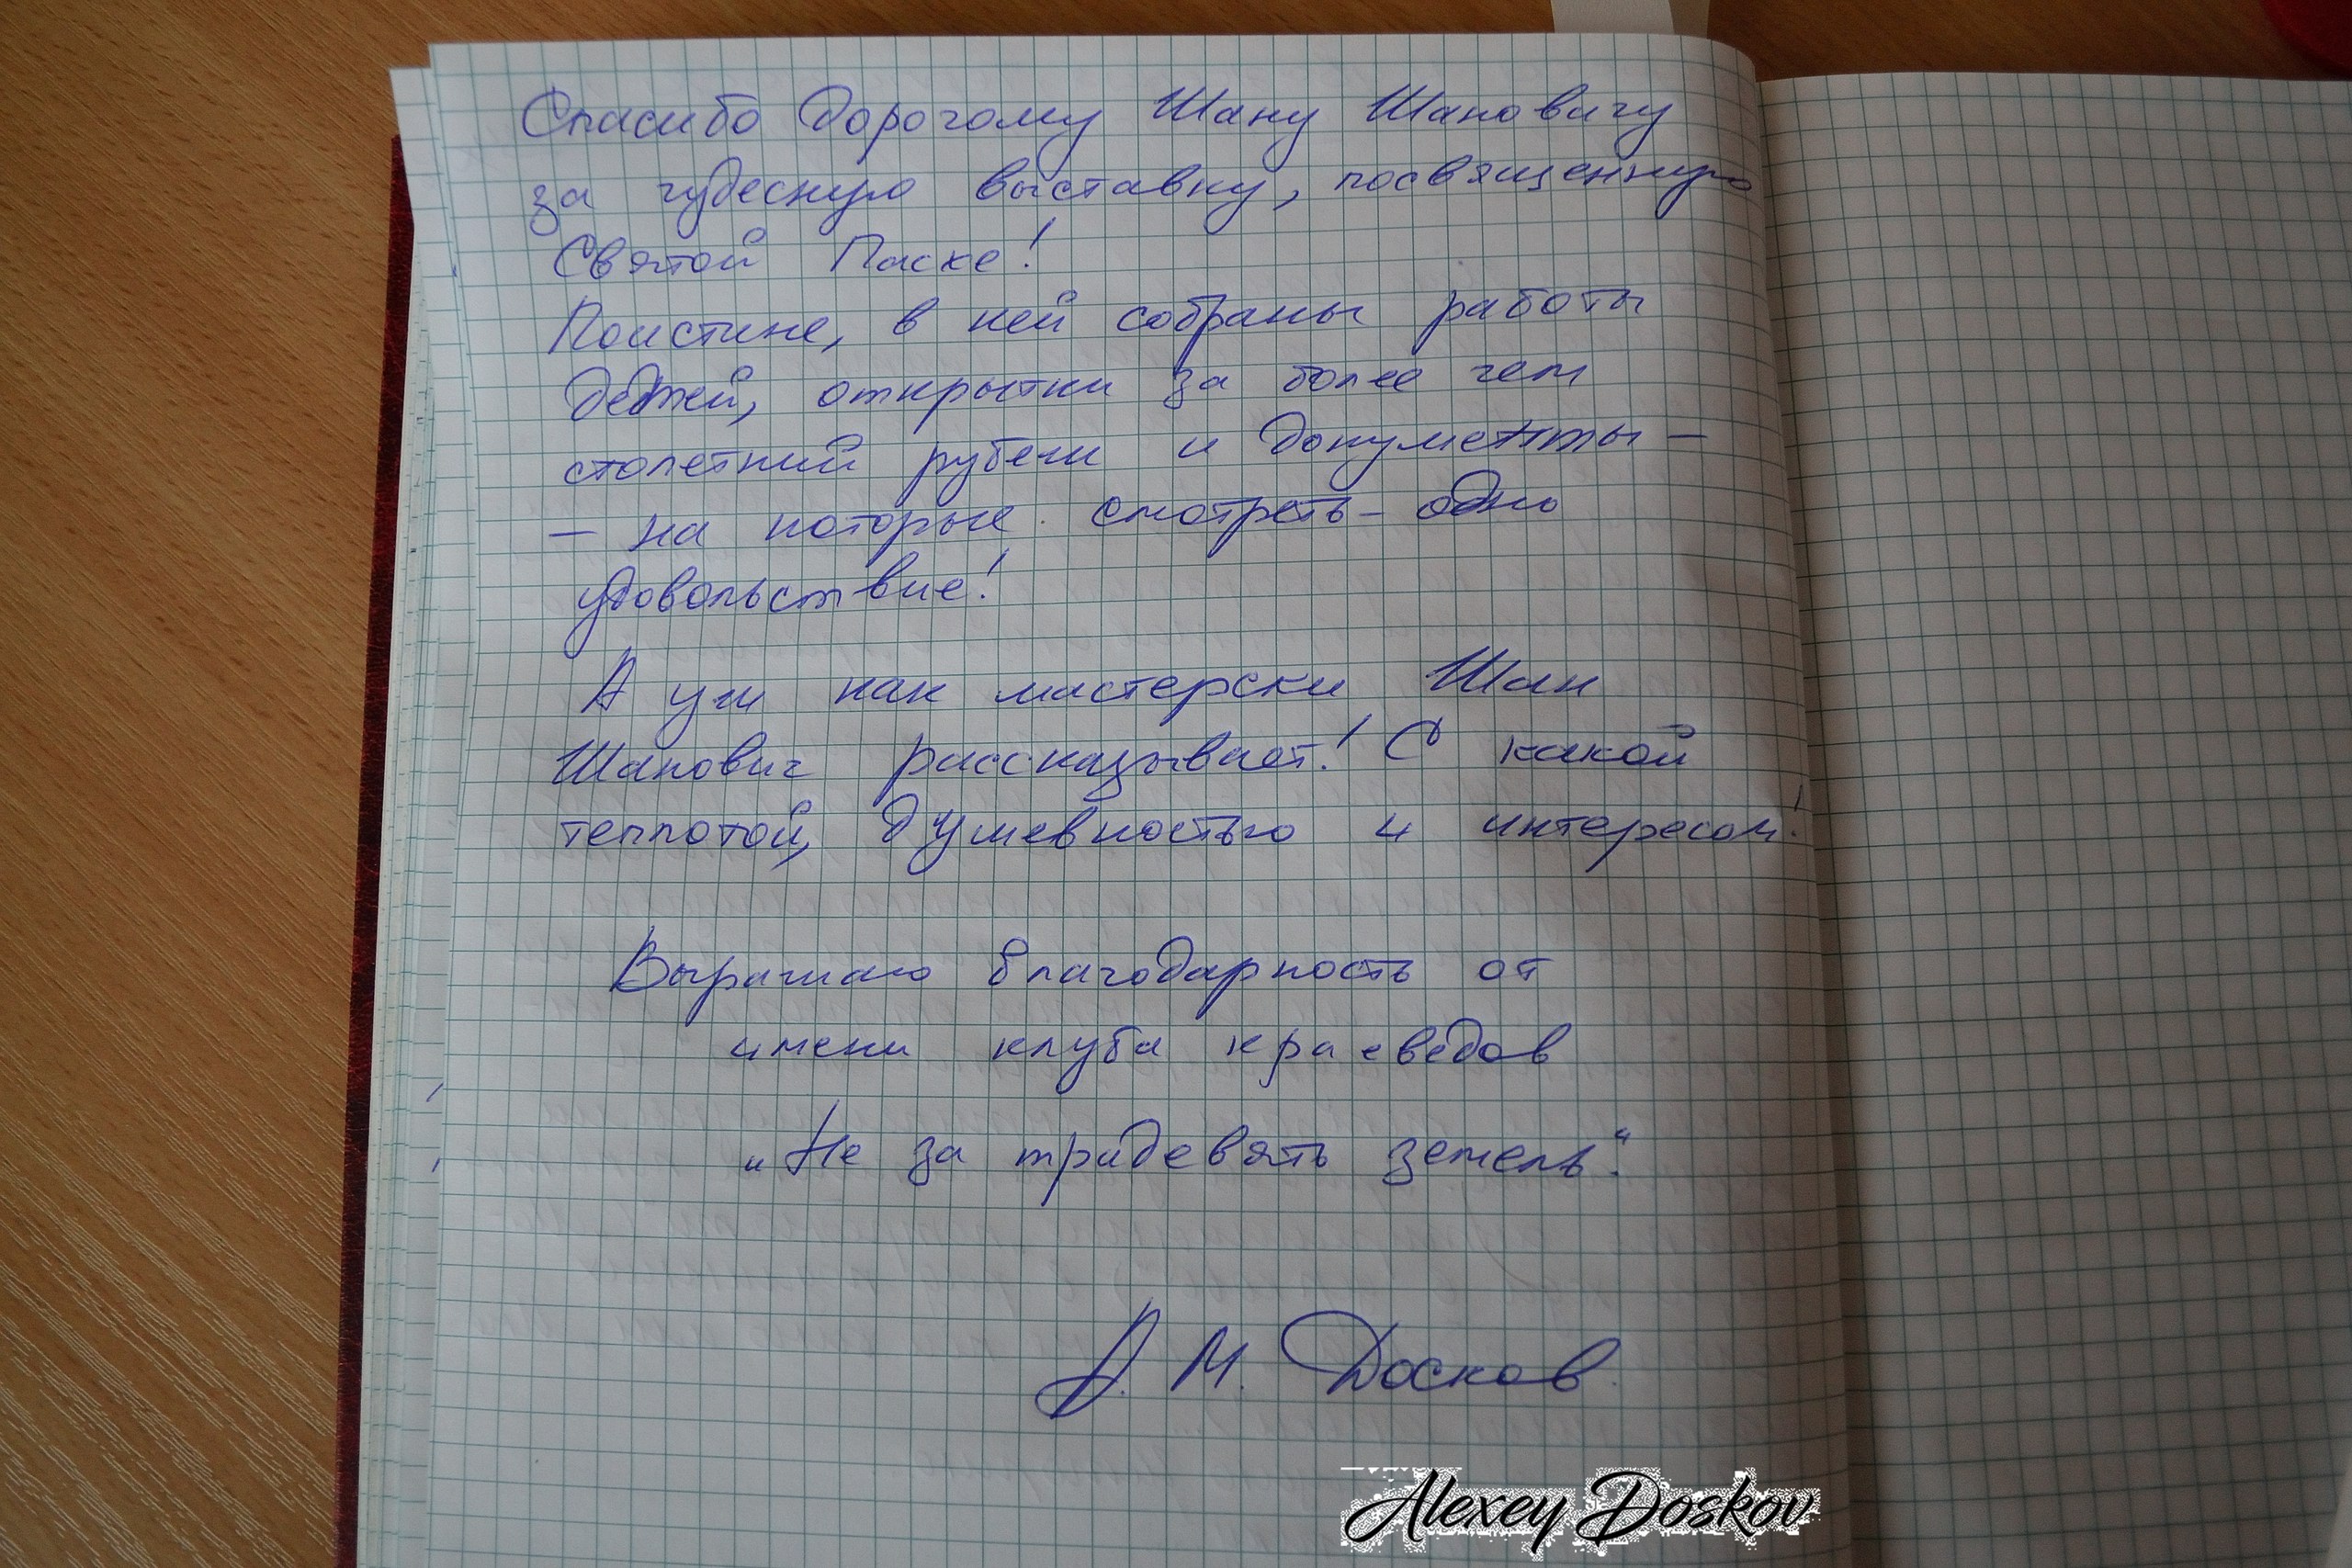 Спасибо дорогому Шану Шановичу
за чудесную выставку, посвященную
Святой Пасхе!
Поистине, в ней собраны работы
детей, открытки за более чем
столетний рубеж и документы —
— на которые смотреть – одно
удовольствие!
А уж как мастерски Шан
Шанович рассказывает! С какой
теплотой, душевностью и интересом!
Выражаю благодарность от
имени клуба краеведов
„Не за тридевять земель“.
А. М. Досков.
Alexey Doskov